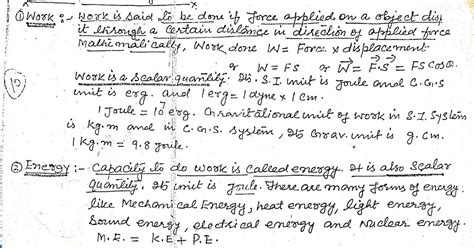 ① Work :- Work is said to be done if force applied on a object disp
it through a certain distance in direction of applied force
Mathematically, Work done W = Force x displacement
or W = FS or W⃗ = F⃗.S⃗ = FS cosθ.
Work is a scalar quantity. Its S.I unit is Joule and C.G.S
unit is erg. and 1 erg = 1 dyne x 1 cm.
10
1 Joule = 10⁷ erg. Gravitational unit of work in S.I System
is kg.m and in C.G.S. System, its Grav. unit is g.cm.
1 kg.m = 9.8 joule.
② Energy :- Capacity to do work is called energy. It is also Scalar
quantity. Its unit is Joule. There are many forms of energy.
like Mechanical Energy, heat energy, light energy,
Sound energy, electrical energy and Nuclear energy.
M.E. = K.E + P.E.